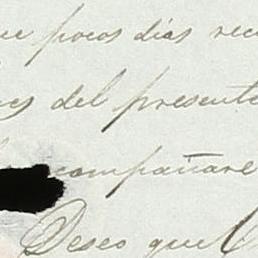 pocos días rec
del presente
compañare
Deseo que